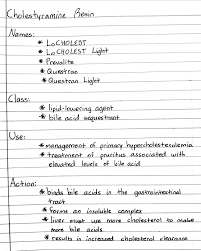 Cholestyramine Resin
Names:
* LoCHOLEST
* LoCHOLEST Light
* Prevalite
* Questran
* Questran Light
Class:
* lipid-lowering agent
* bile acid sequestrant
Use:
* management of primary hypercholesterolemia
* treatment of pruritus associated with
elevated levels of bile acid
Action:
* binds bile acids in the gastrointestinal
tract
* forms an insoluble complex
* liver must use more cholesterol to make
more bile acids
* results in increased cholesterol clearance